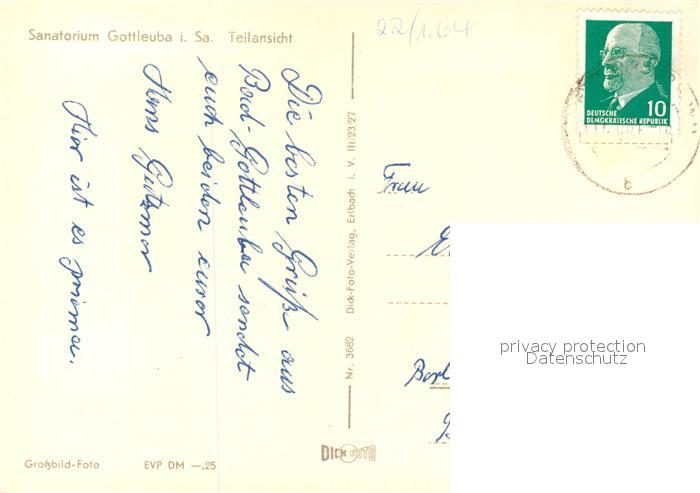 Sanatorium Gottleuba i. Sa. Teilansicht
22/1.64
Die besten Grüße aus
Bad-Gottleuba sendet
euch beiden eurer
Hans
Hier ist es prima.
Nr. 3682 Dick-Foto-Verlag, Erlbach i. V. III/23/27
10
DEUTSCHE
DEMOKRATISCHE REPUBLIK
b
Frau
Berl
privacy protection
Datenschutz
DICK FOTO
Großbild-Foto EVP DM —.25